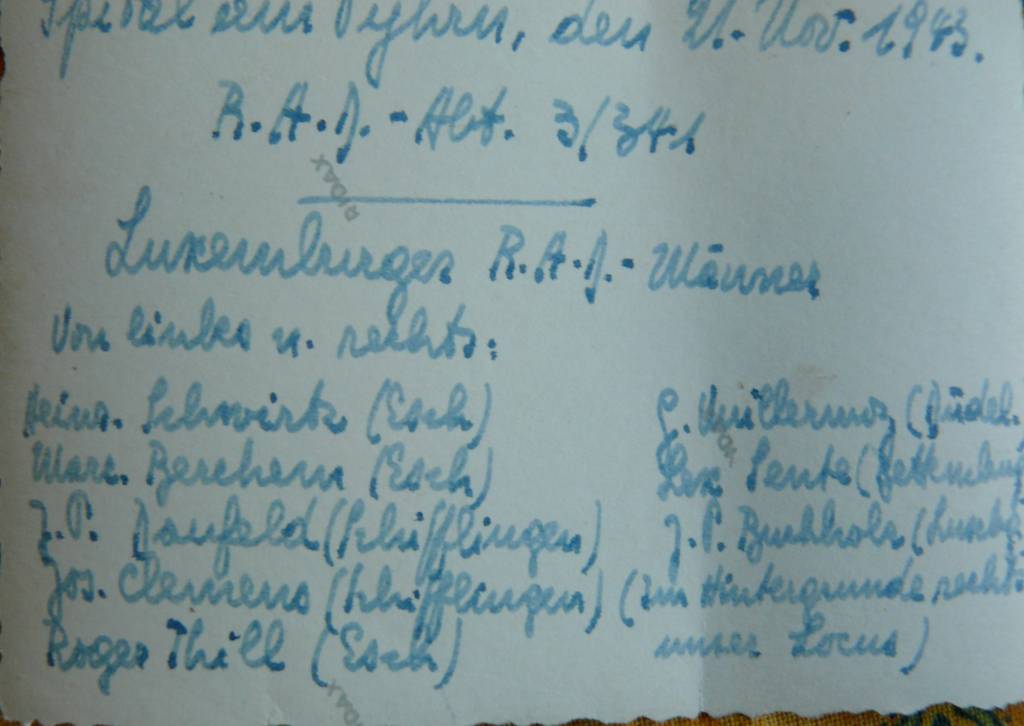 Spital am Pyhrn, den 21. Nov. 1943.
R.A.D.-Abt. 3/341
Luxemburger R.A.D.-Männer
Von links n. rechts:
Heino. Schwirtz (Esch)
Marc. Berchem (Esch)
J.P. Daufeld (Schifflingen)
Jos. Clemens (Schifflingen)
Roger Thill (Esch)
(Düdel.
Lex Sente (Bettemburg
J.P. Buchholz (Luxbg
(Im Hintergrunde rechts
unser Locus)